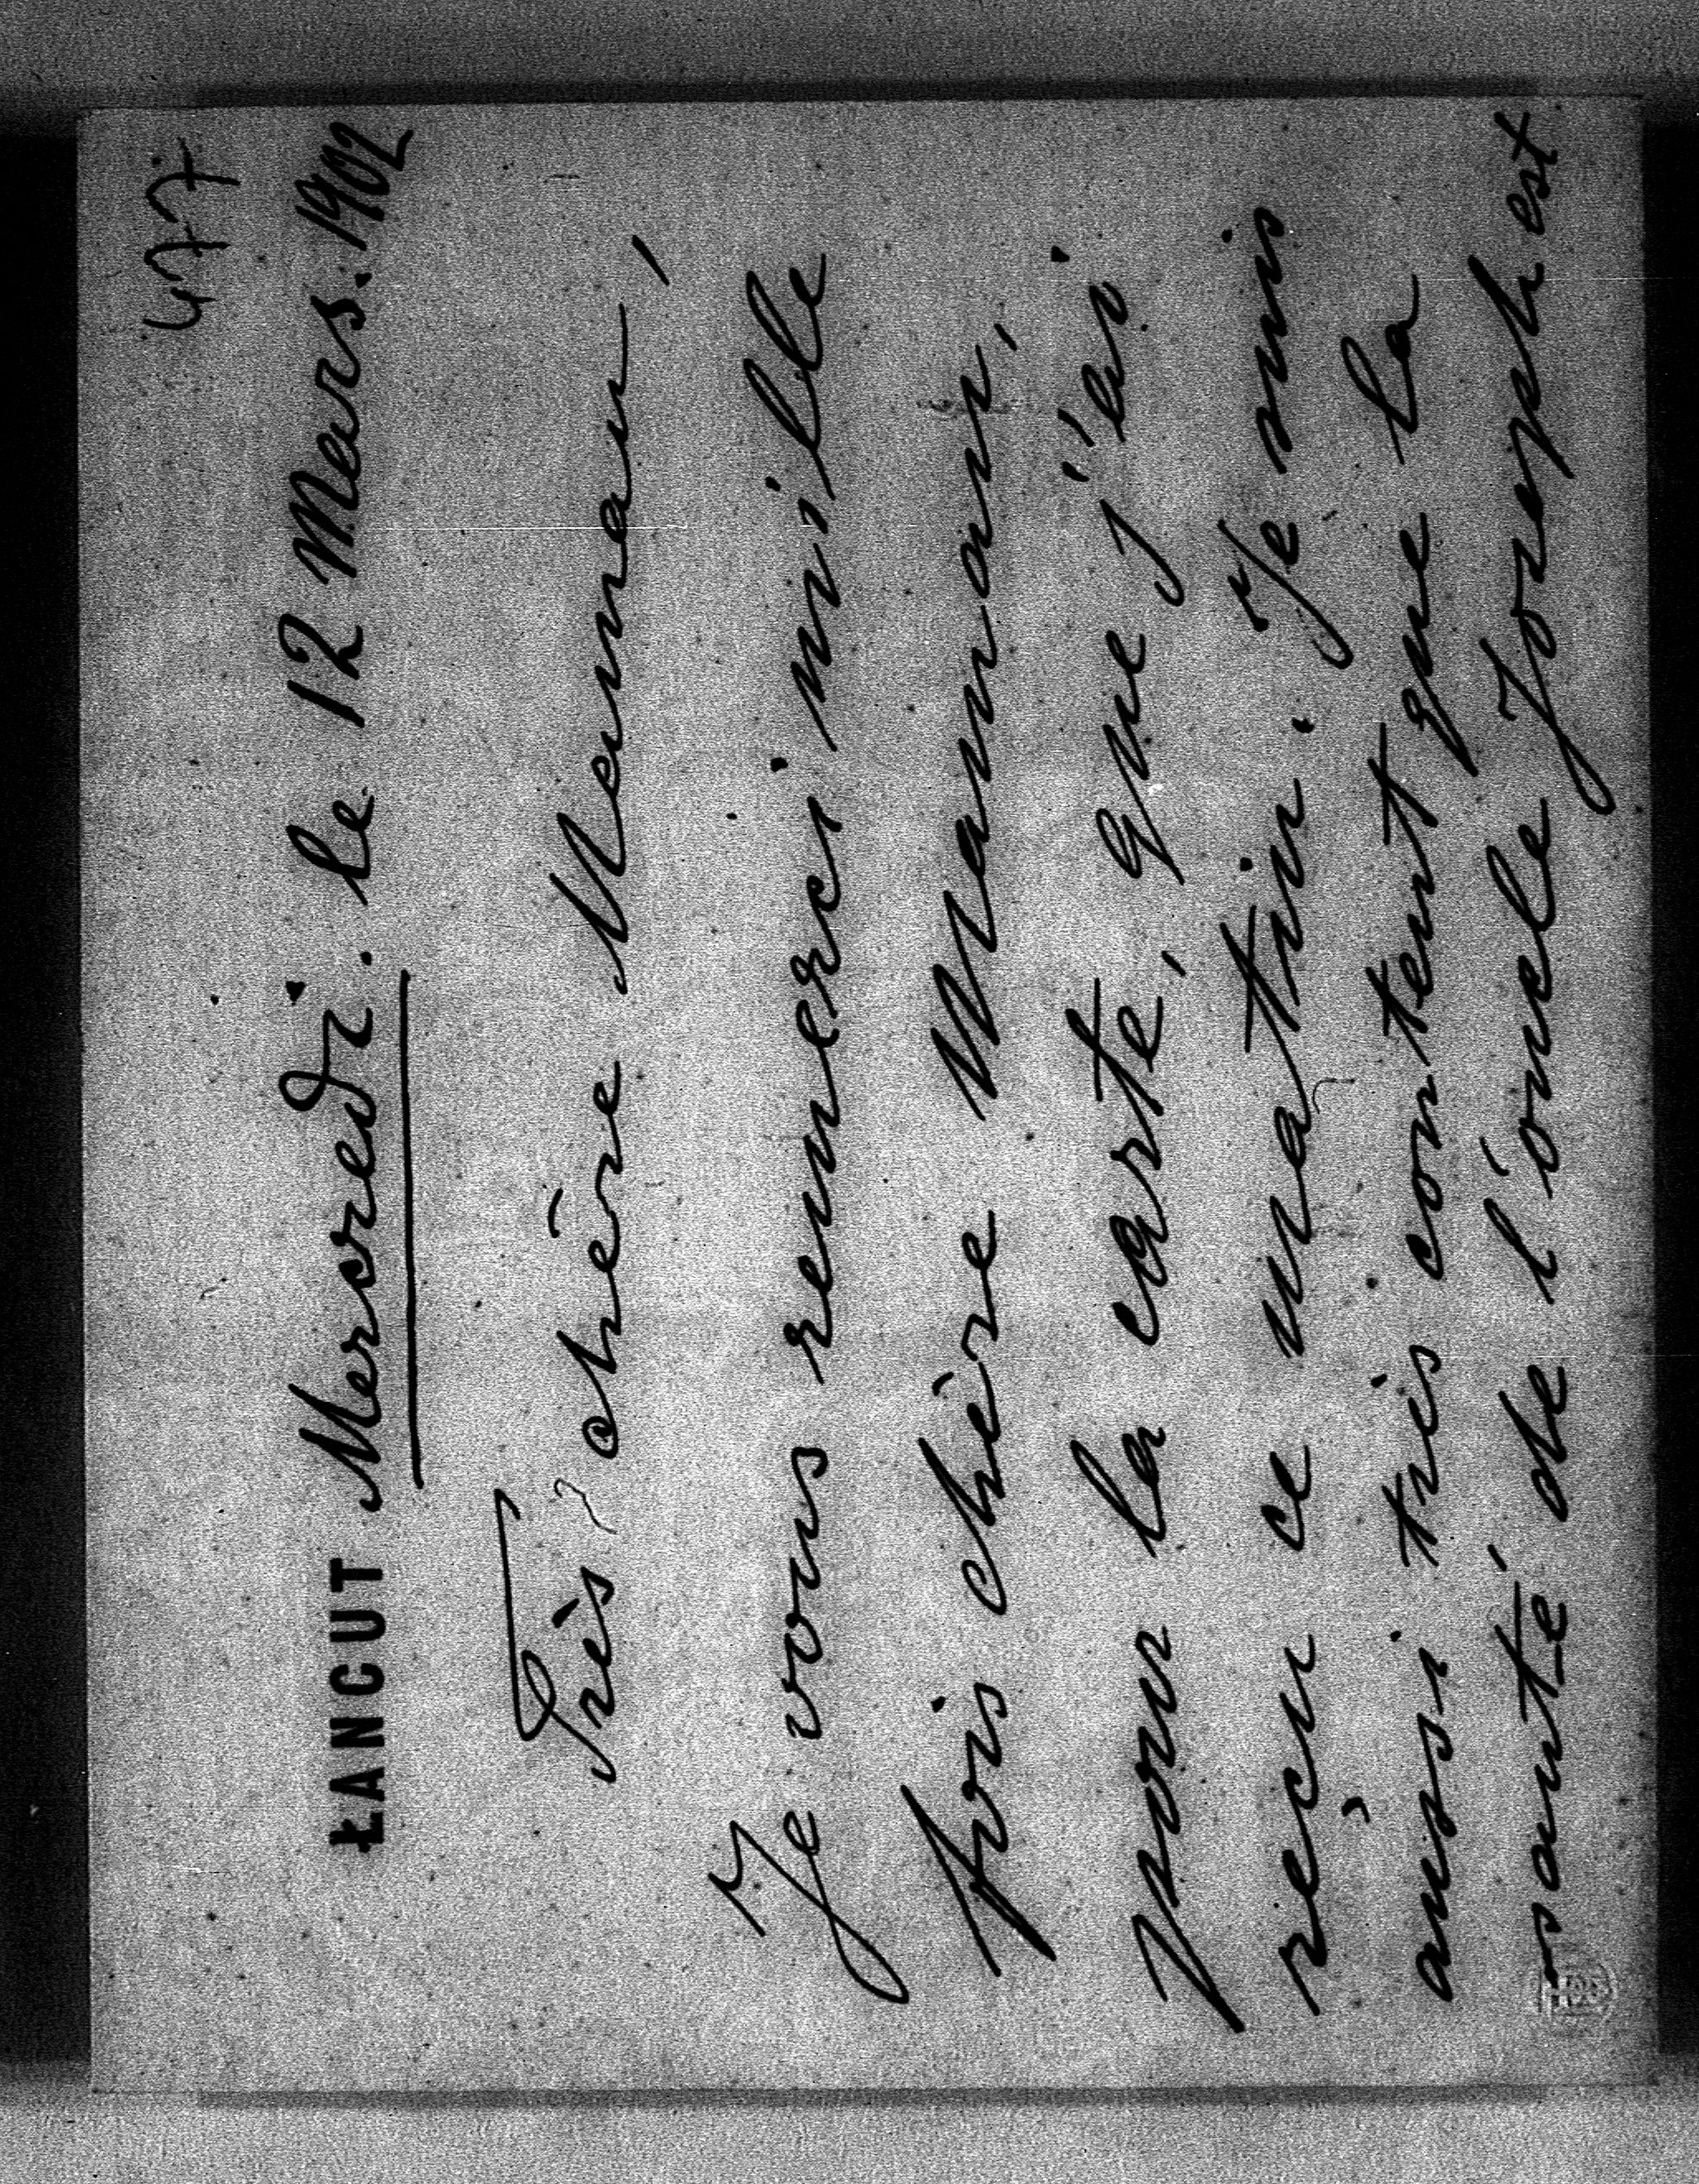 477
ŁANCUT Mercredi. le 12 Mars. 1902
Très chère Maman,
Je vous remerci mille
fois chère Maman,
pour la carte, que j'ai
reçu ce matin. Je suis
aussi très content que la
santé de l'oncle Joseph est